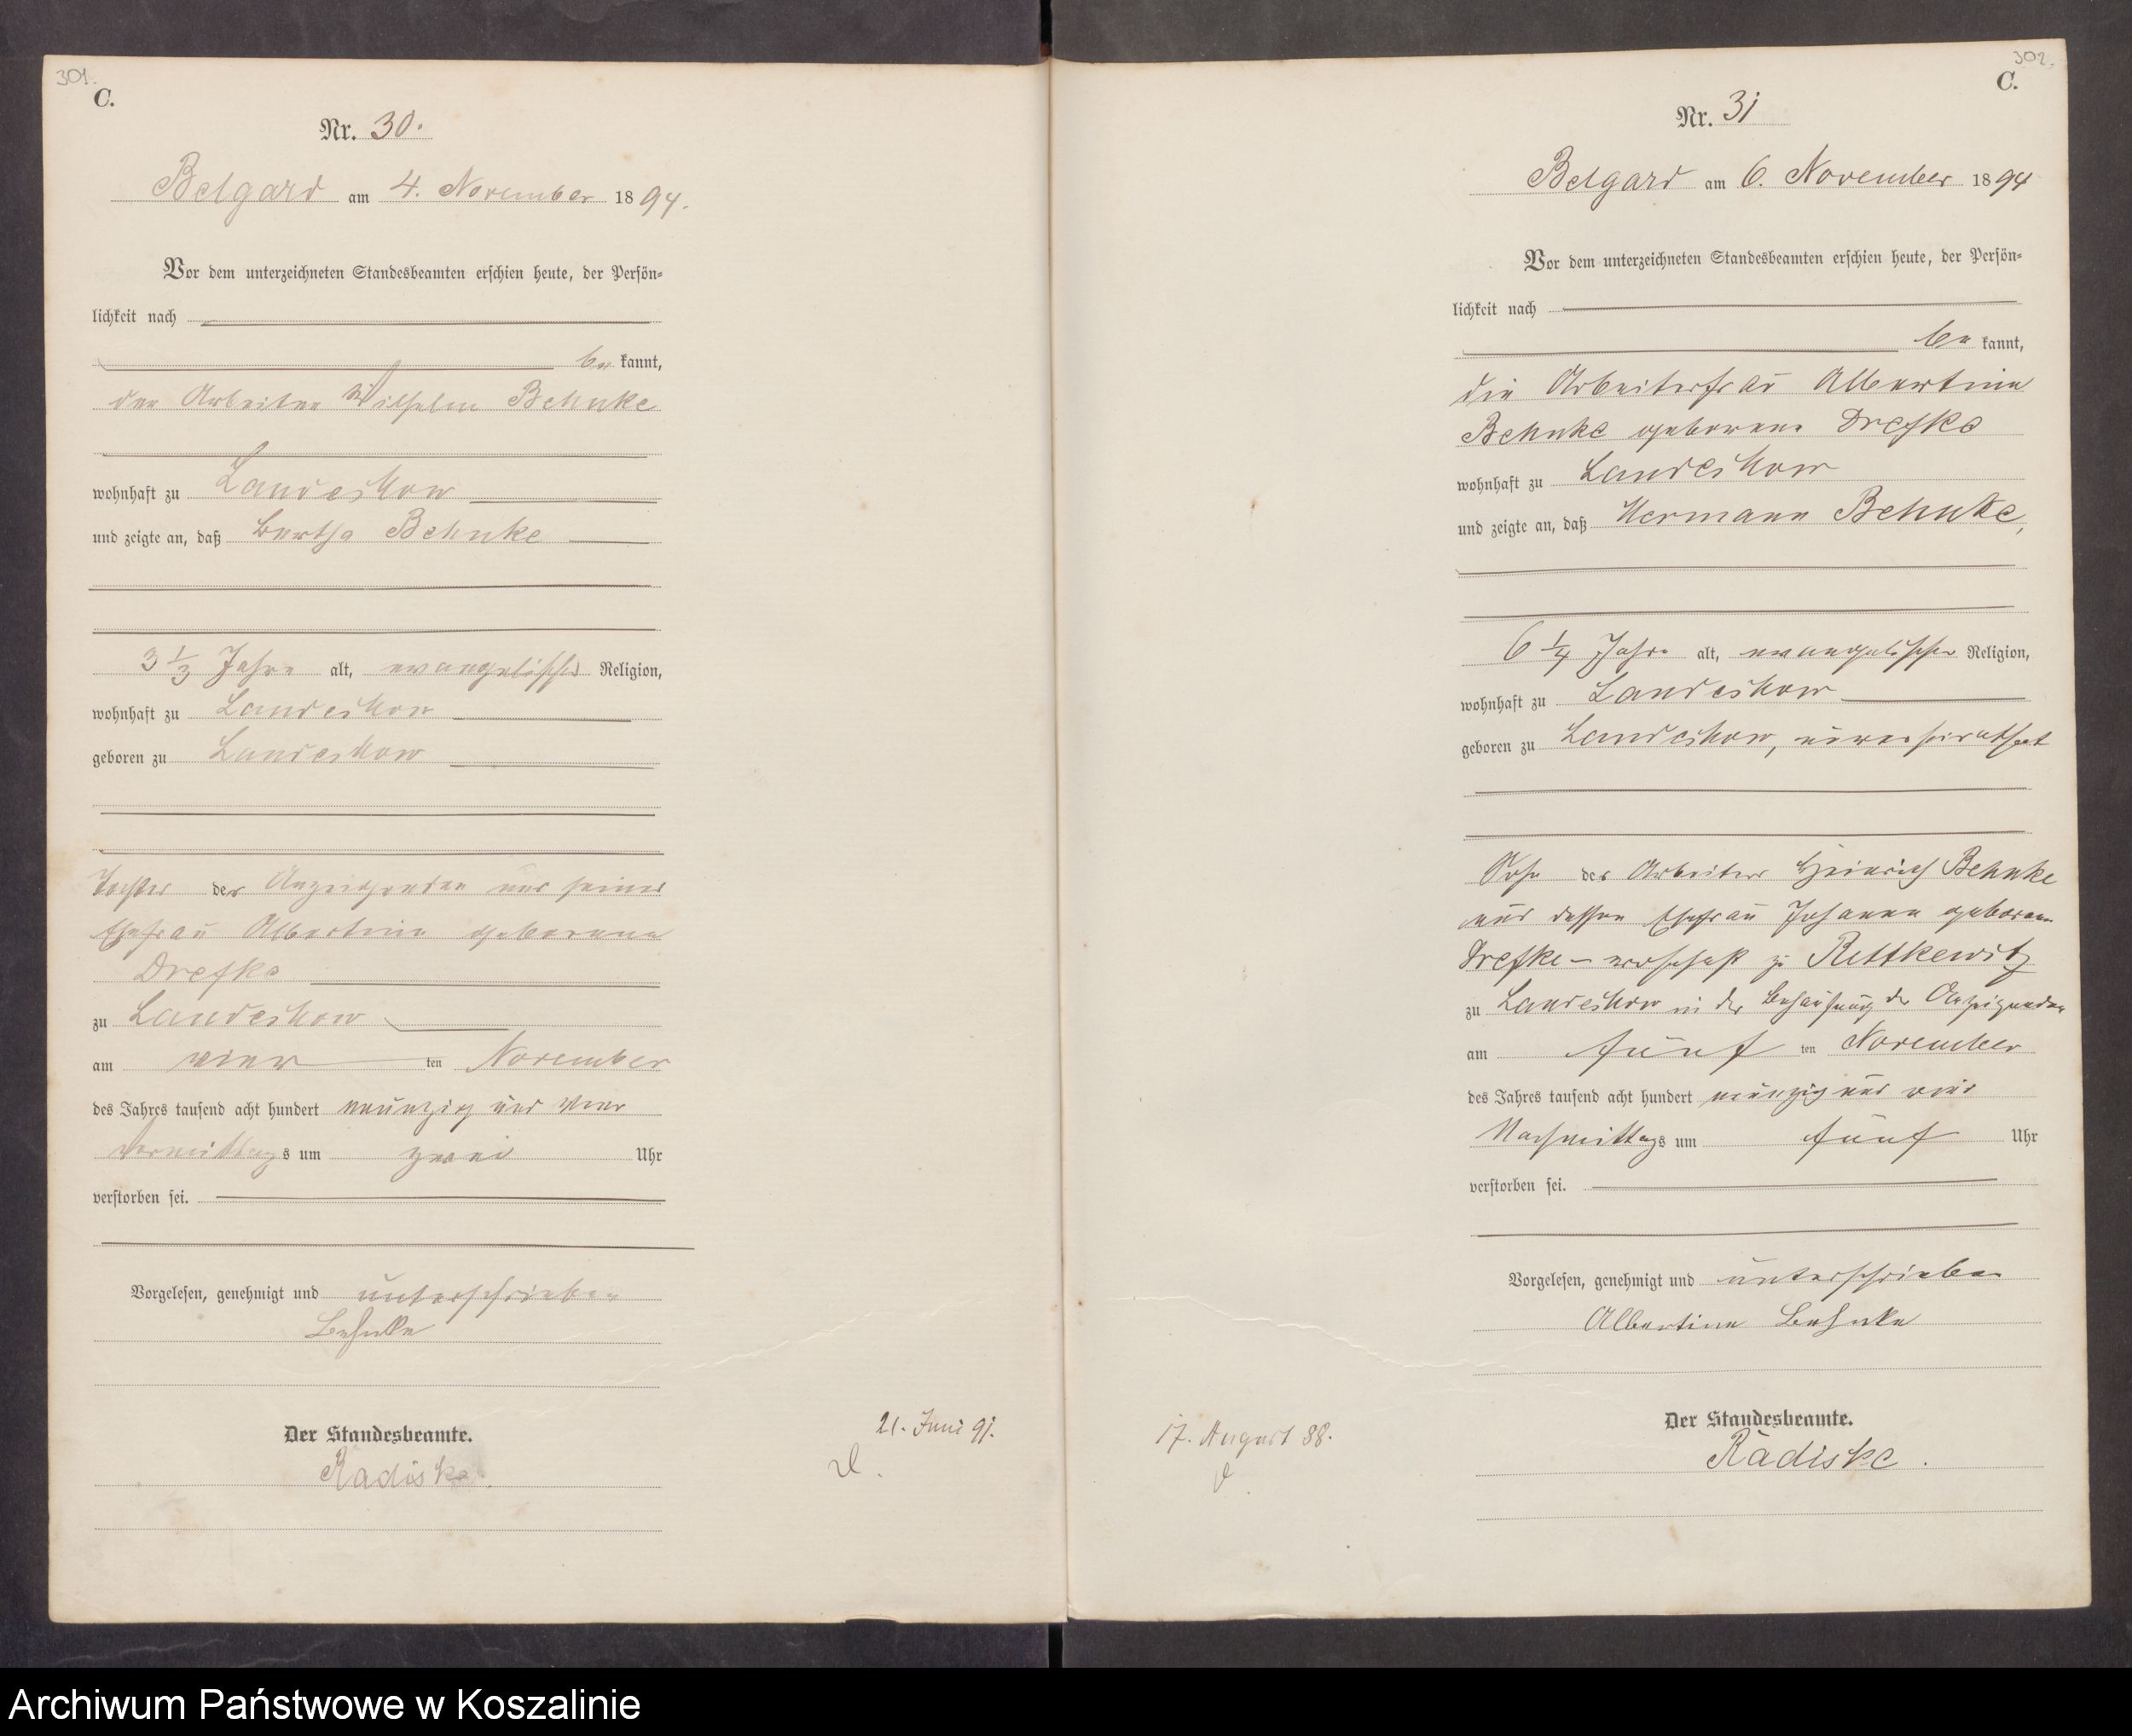 301.
C.
Nr. 30.
Belgard am 4. November 1894.
Vor dem unterzeichneten Standesbeamten erschien heute, der Persön-
lichkeit nach
bekannt,
der Arbeiter Wilhelm Behnke
wohnhaft zu Landeskow
und zeigte an, daß Bertha Behnke
3 1/3 Jahre alt, evangelischer Religion,
wohnhaft zu Landeskow
geboren zu Landeskow
Tochter des Anzeigenden und seiner
Ehefrau Albertine geborene
Drefke
zu Landeskow
am vier ten November
des Jahres tausend acht hundert neunzig und vier
Vormittags um zwei Uhr
verstorben sei.
Vorgelesen, genehmigt und unterschrieben
Behnke
Der Standesbeamte.
Radiske.
21. Juni 91.
302.
C.
Nr. 31
Belgard am 6. November 1894
Vor dem unterzeichneten Standesbeamten erschien heute, der Persön-
lichkeit nach
bekannt,
die Arbeiterfrau Albertine
Behnke geborene Drefke
wohnhaft zu Landeskow
und zeigte an, daß Hermann Behnke,
6 1/4 Jahre alt, evangelischer Religion,
wohnhaft zu Landeskow
geboren zu Landeskow, unverheirathet
Sohn des Arbeiters Heinrich Behnke
und dessen Ehefrau Johanne geborene
Drefke – wohnhaft zu Rettkewitz
zu Landeskow in der Behausung der Anzeigenden
am fünf ten November
des Jahres tausend acht hundert neunzig und vier
Nachmittags um fünf Uhr
verstorben sei.
Vorgelesen, genehmigt und unterschrieben
Albertine Behnke
Der Standesbeamte.
Radiske.
17. August 88.
Archiwum Państwowe w Koszalinie